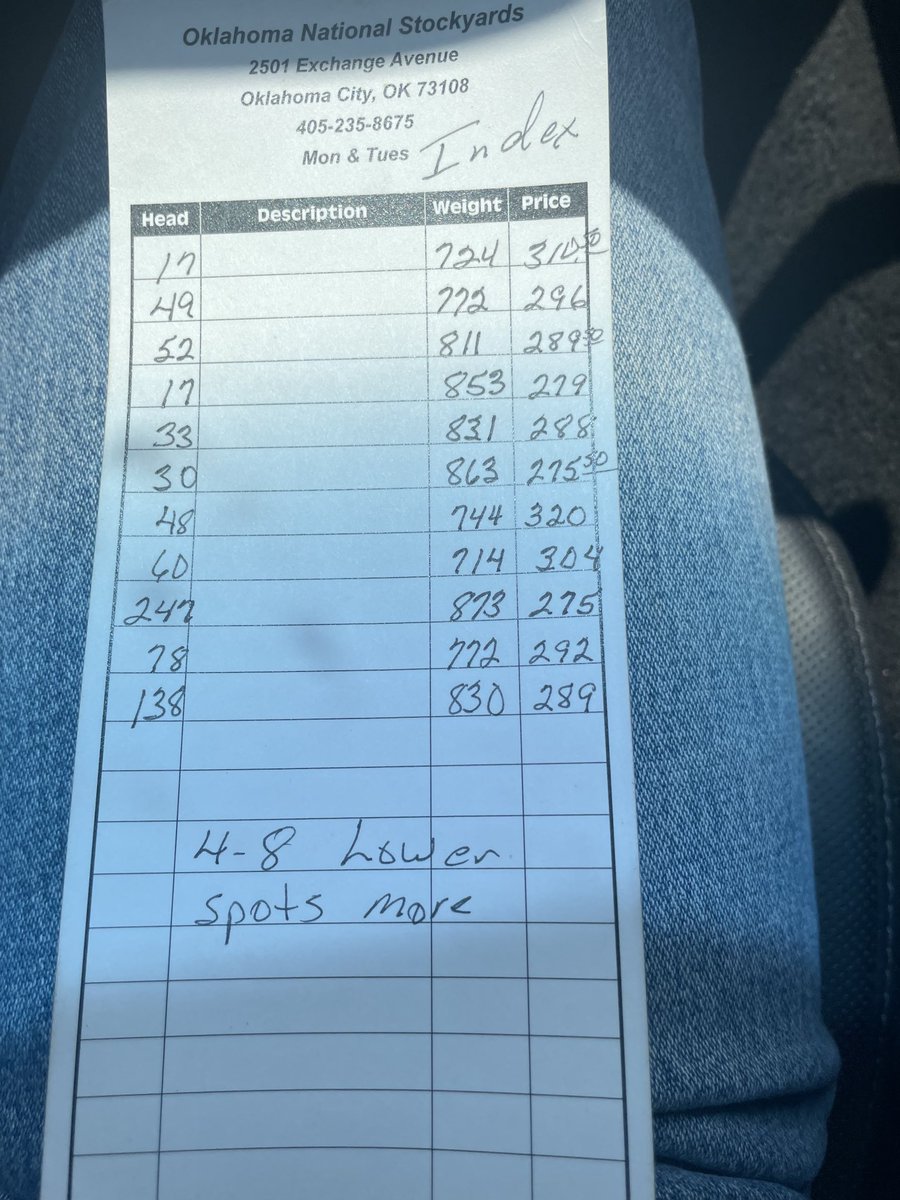 Oklahoma National Stockyards
2501 Exchange Avenue
Oklahoma City, OK 73108
405-235-8675
Mon & Tues Index
Head Description Weight Price
17 724
49 772 296
52 811 289.50
17 853 279
33 831 288
30 863 275.50
48 744 320
60 714 304
247 873 275
78 772 292
138 830 289
4-8 Lower
spots more